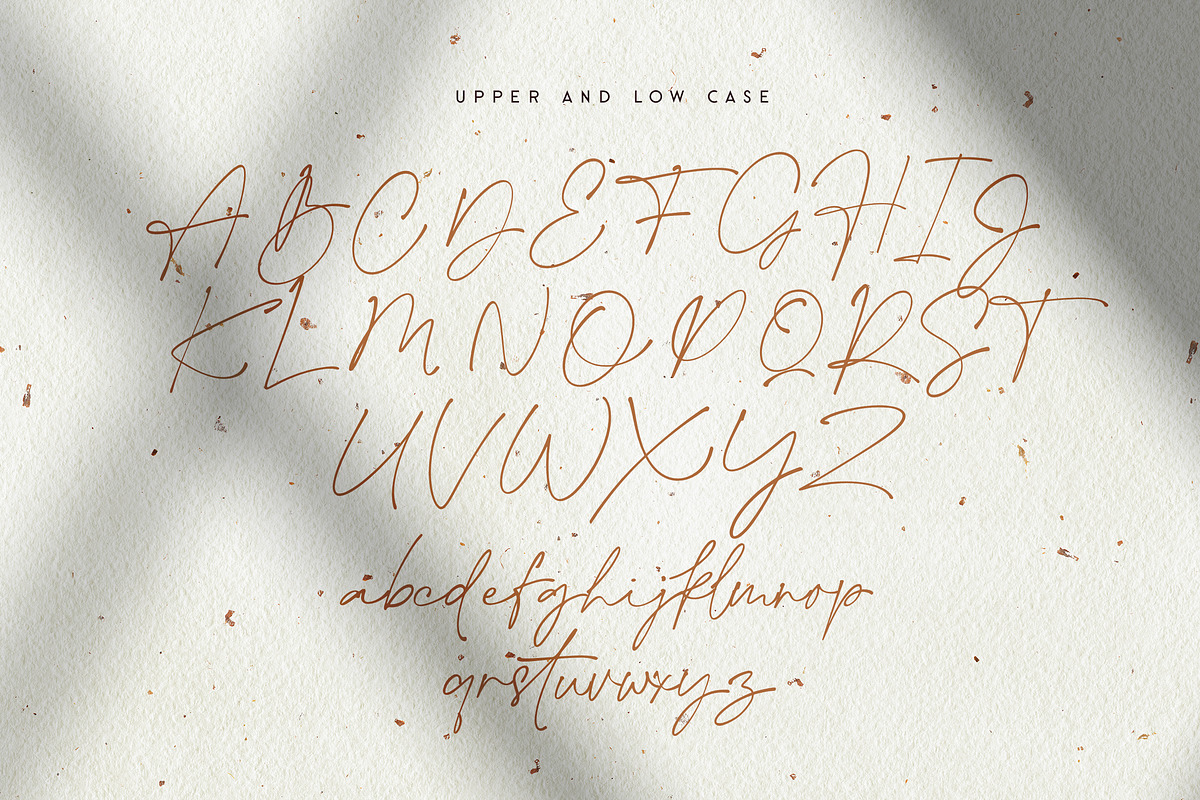 UPPER AND LOW CASE
ABCDEFGHIJ
KLMNOPQRST
UVWXYZ
abcdefghijklmnop
qrstuvwxyz